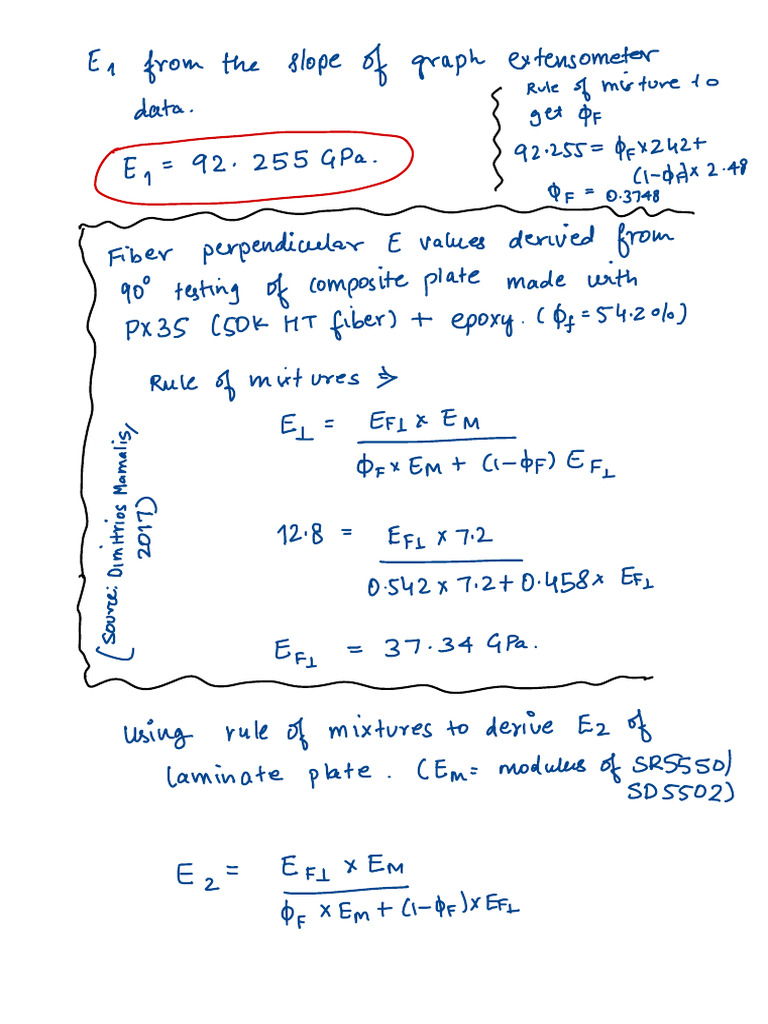 E1 from the slope of graph extensometer
data.
E1 = 92.255 GPa.
Rule of mixture to
get ϕF
92.255 = ϕF×242+
(1-ϕF)× 2.48
ϕF = 0.3748
Fiber perpendicular E values derived from
90° testing of composite plate made with
PX35 (50K HT fiber) + epoxy. (ϕf = 54.2%)
Rule of mixtures ⇒
E⊥ = EF⊥ × EM
ϕF × EM + (1-ϕF) EF⊥
12.8 = EF⊥ × 7.2
0.542 × 7.2 + 0.458 × EF⊥
EF⊥ = 37.34 GPa.
(Source: Dimitrios Mamalis,
2017)
Using rule of mixtures to derive E2 of
laminate plate. (Em = modulus of SR5550/
SD5502)
E2 = EF⊥ × EM
ϕF × EM + (1-ϕF) × EF⊥